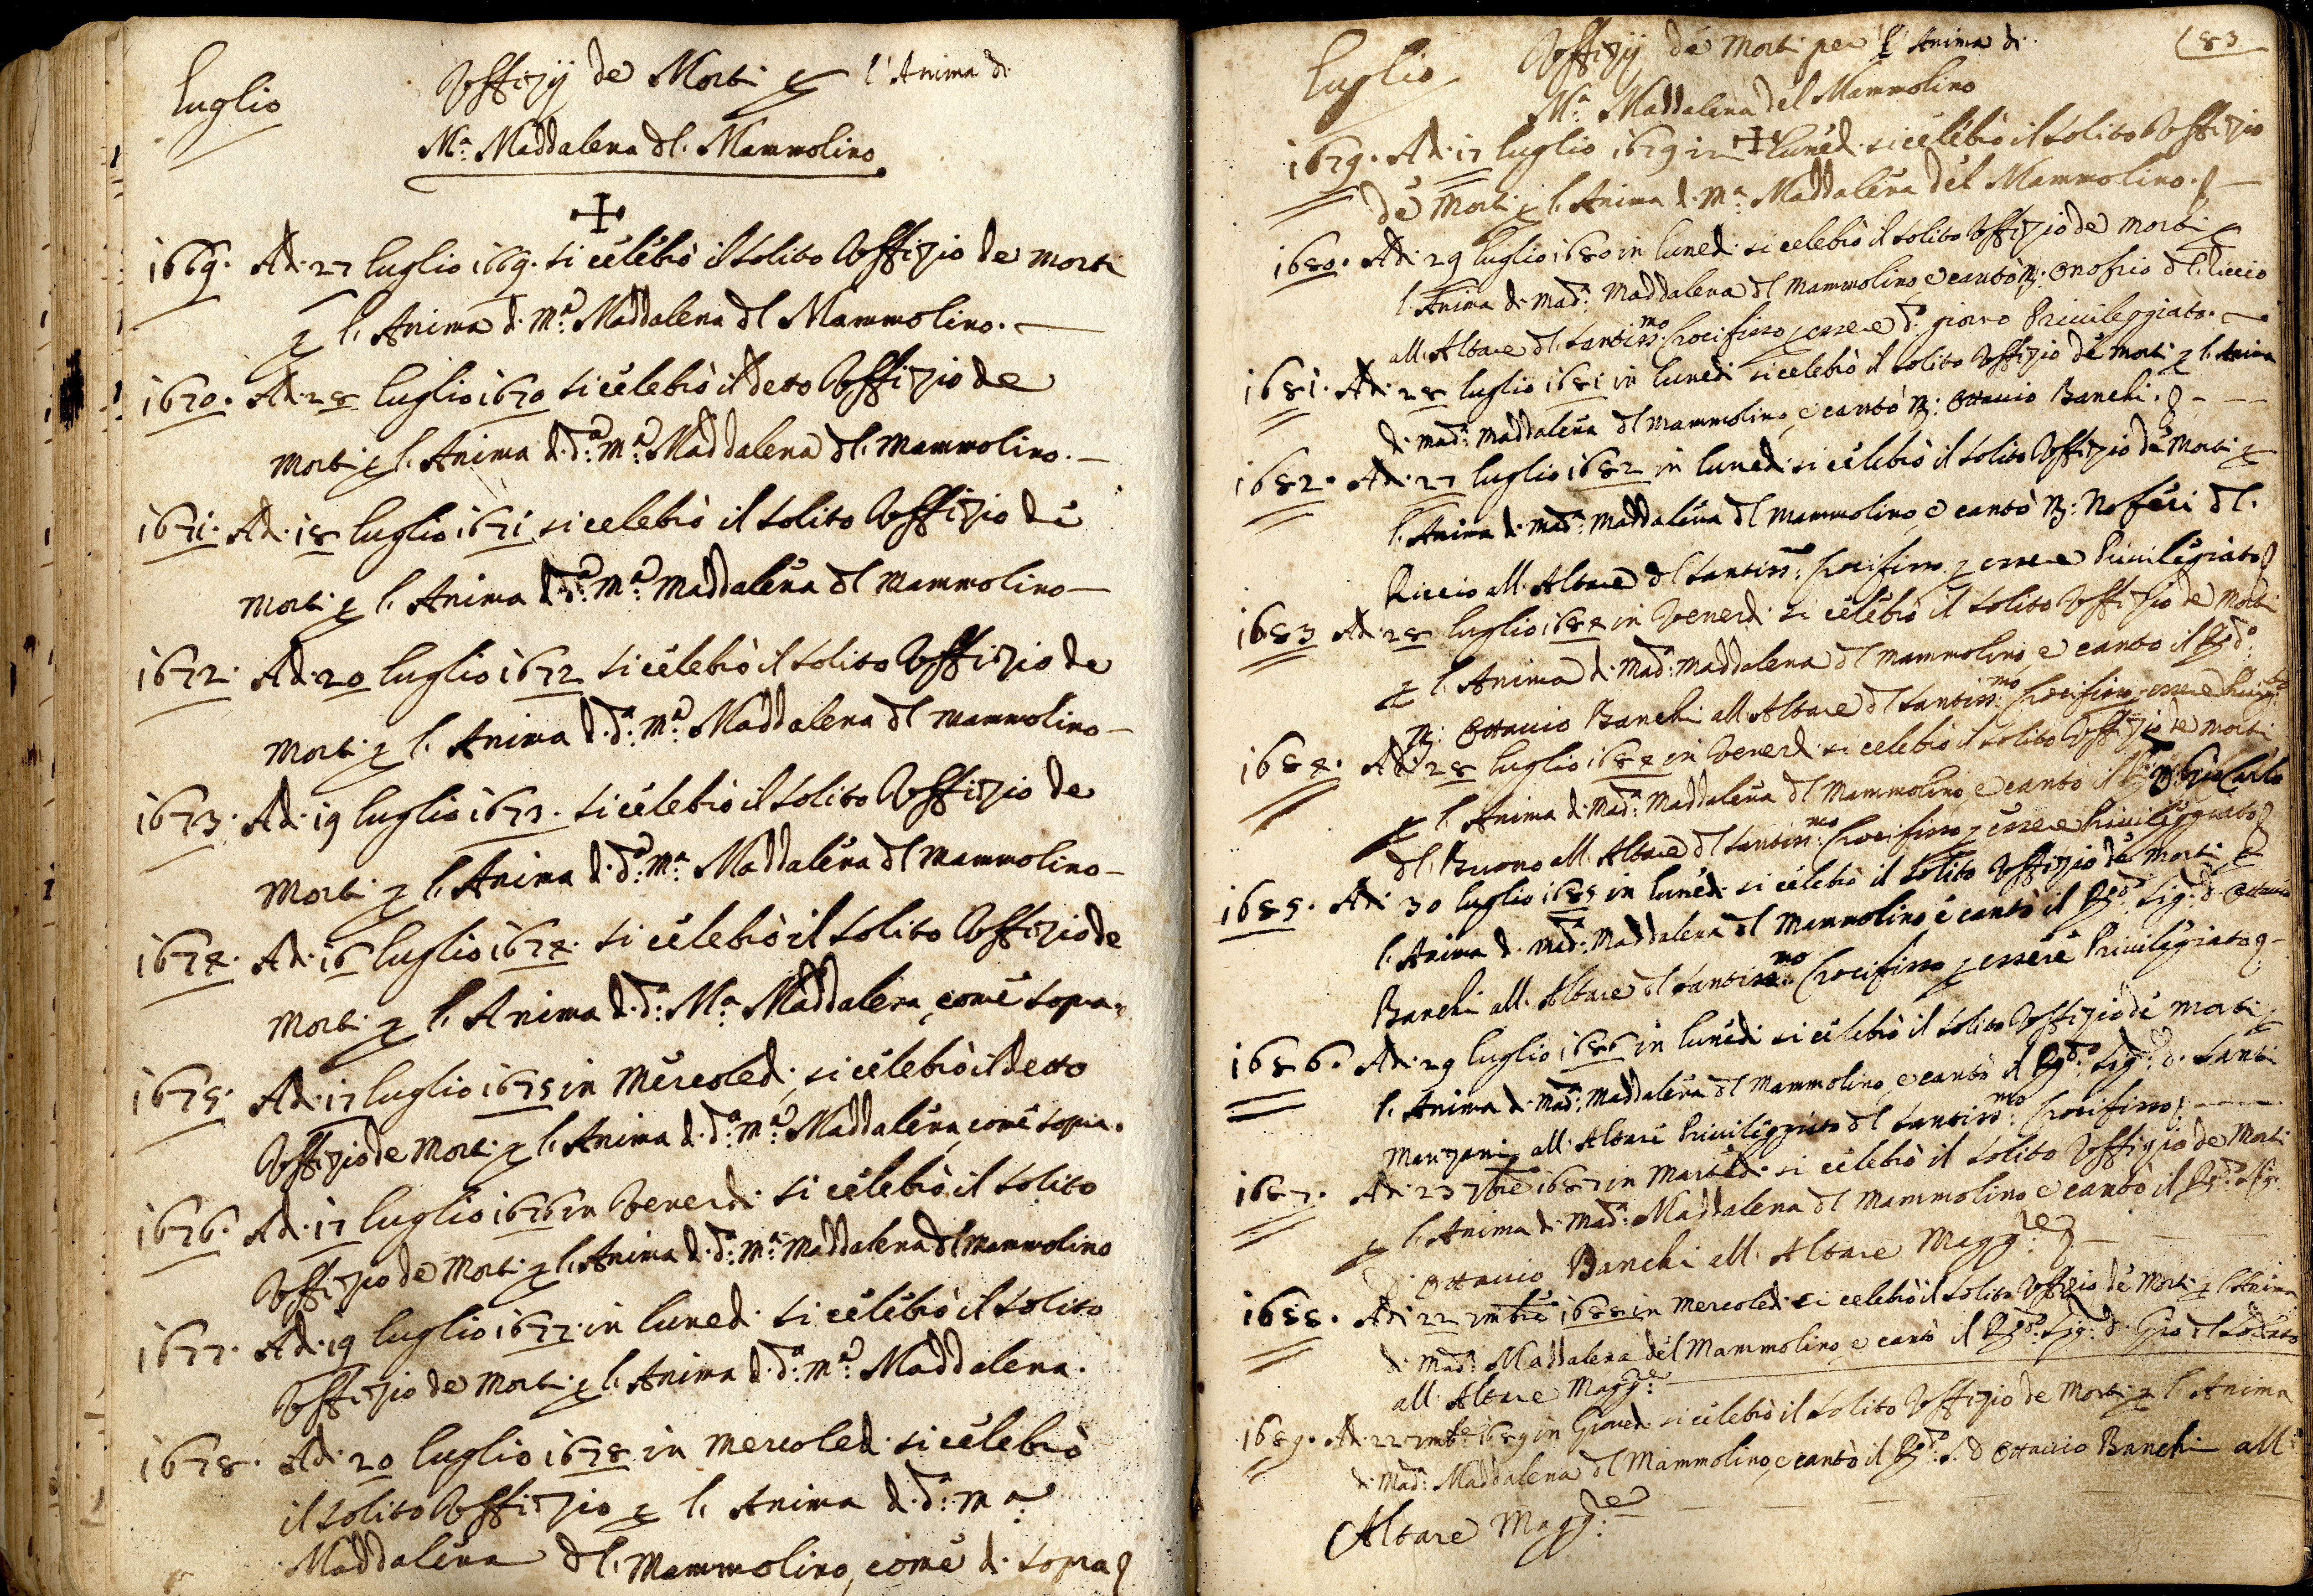 luglio
Uffizij de Morti p l'Anima di
Mª: Maddalena dl. Mammolino
1669. Ad: 27 luglio 1669. si celebrò il solito Uffizio de morti
p l. Anima d. Mª: Maddalena dl Mammolino.
1670. Ad: 28 luglio 1670 si celebrò il detto Uffizio de
Morti p l. Anima d. dª: Mª: Maddalena dl. Mammolino.
1671. Ad: 18 luglio 1671 si celebrò il solito Uffizio de
Morti p l. Anima d dª: Mª: Maddalena dl Mammolino
1672. Ad: 20 luglio 1672 si celebrò il solito Uffizio de
Morti p l. Anima d. dª: Mª: Maddalena dl Mammolino
1673. Ad: 19 luglio 1673. si celebrò il solito Uffizio de
Morti p l. Anima d. dª: Mª: Maddalena dl Mammolino
1674. Ad: 16 luglio 1674. si celebrò il solito Uffizio de
Morti p l. Anima d. dª: Mª: Maddalena, come sopra.
1675. Ad: 17 luglio 1675 in Mercoled: si celebrò il detto
Uffizio de Morti p l. Anima d. dª: Mª: Maddalena, come sopra.
1676. Ad: 17 luglio 1676 in Venerdi si celebrò il solito
Uffizio de Morti p l. Anima d. dª: Mª: Maddalena dl Mammolino
1677. Ad: 19 luglio 1677. in luned: si celebrò il solito
Uffizio de Morti p l. Anima d. dª: Mª: Maddalena.
1678. Ad: 20 luglio 1678 in Mercoled: si celebrò
il solito Uffizio p l. Anima d. dª: Mª:
Maddalena dl. Mammolino, come di sopra
83
luglio
Uffizij de Morti per l'Anima di
Mª: Maddalena del Mammolino
1679. Ad: 17 luglio 1679 in luned: si celebrò il solito Uffizio
de Morti p l. Anima d. Mª: Maddalena del Mammolino.
1680. Adi 29 luglio 1680 in luned: si celebrò il solito Uffizio de morti p
l. Anima d. Madª: Maddalena dl Mammolino e cantò Onofrio dl. Riccio
all. Altare dl. santissmo: Crocifisso p essere dº: giorno Priuileggiato.
1681. Adi 28 luglio 1681 in lunedi si celebrò il solito Uffizio de morti p l. Anima
d. Madª: Maddalena dl Mammolino, e cantò Ottauio Banchi.
1682. Adi 27 luglio 1682 in luned: si celebrò il solito Uffizio de Morti p
l. Anima d. Madª: Maddalena dl Mammolino e cantò Noferi dl.
Riccio all. Altare dl santissmo: Crocifisso p essere Priuilegiato
1683 Adi 28 luglio 1684 in Venerd: si celebrò il solito Uffizio de Morti
p l. Anima d. Madª: Maddalena dl Mammolino, e cantò il Rdº:
Ottauio Banchi all. Altare dl santissmo: Crocifisso p essere
1684. Adi 28 luglio 1684 in Venerd: si celebrò il solito Uffizio de morti
p l. Anima d. Madª: Maddalena dl Mammolino, e cantò il Carlo
dl. Buono all. Altare dl santissmo: Crocifisso p essere Priuileggiato
1685. Adi 30 luglio 1685 in luned: si celebrò il solito Uffizio de morti p
l. Anima d. Madª: Maddalena dl Mammolino e cantò il Rdº: Sigr: d. Ottauio
Banchi all. Altare dl santissmo: Crocifisso p essere Priuilegiato
1686. Adi 29 luglio 1686 in lunedi si celebrò il solito Uffizio de morti p
l. Anima d. Madª: Maddalena dl Mammolino, e cantò il Rdº: Sigr: d. Santi
Manzani, all. Altare Priuileggiato dl santissmo: Crocifisso
1687. Adi 23 7bre 1687 in Martedi si celebrò il solito Uffizio de Morti
p l. Anima d. Madª: Maddalena dl Mammolino e cantò il Rdº: Sigr.
D. Ottauio Banchi all. Altare Maggre
1688. Adi 22 1688 in Mercoled: si celebrò il solito Uffizio de Morti p l. Anima
d. Madª: Maddalena del Mammolino, e cantò il Rdº: Sigr: d. Gio dl
all. Altare Maggre:
1689. Ad: 22 1689 in Gioued: si celebrò il solito Uffizio de Morti p l. Anima
d. Madª: Maddalena dl Mammolino, e cantò il Rdº: S. D Ottauio Banchi all.
Altare Maggre: